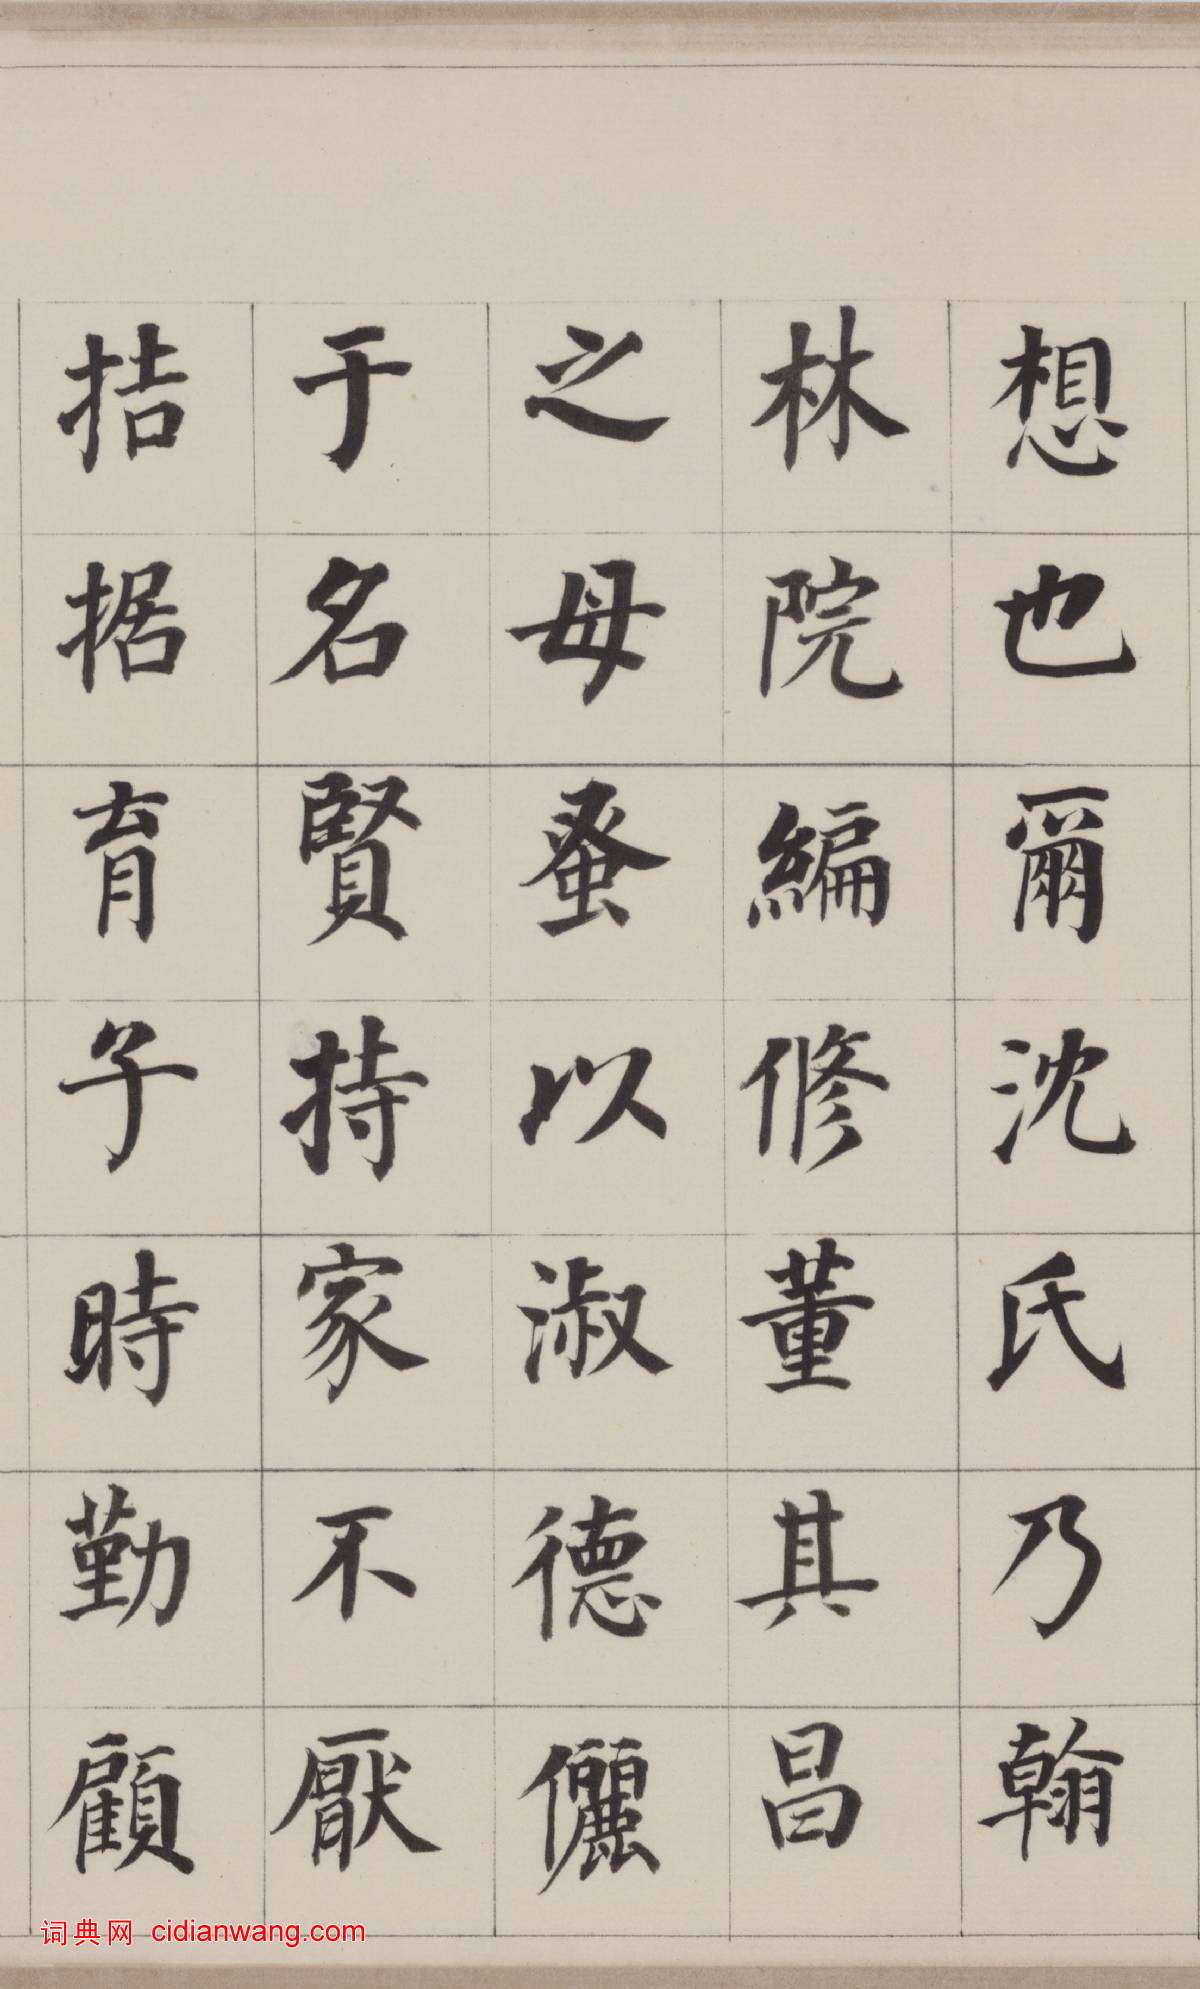 想也爾沈氏乃翰
林院編修董其昌
之母蚤以淑德儷
于名賢持家不厭
拮据育子時勤顧
词典网 cidianwang.com